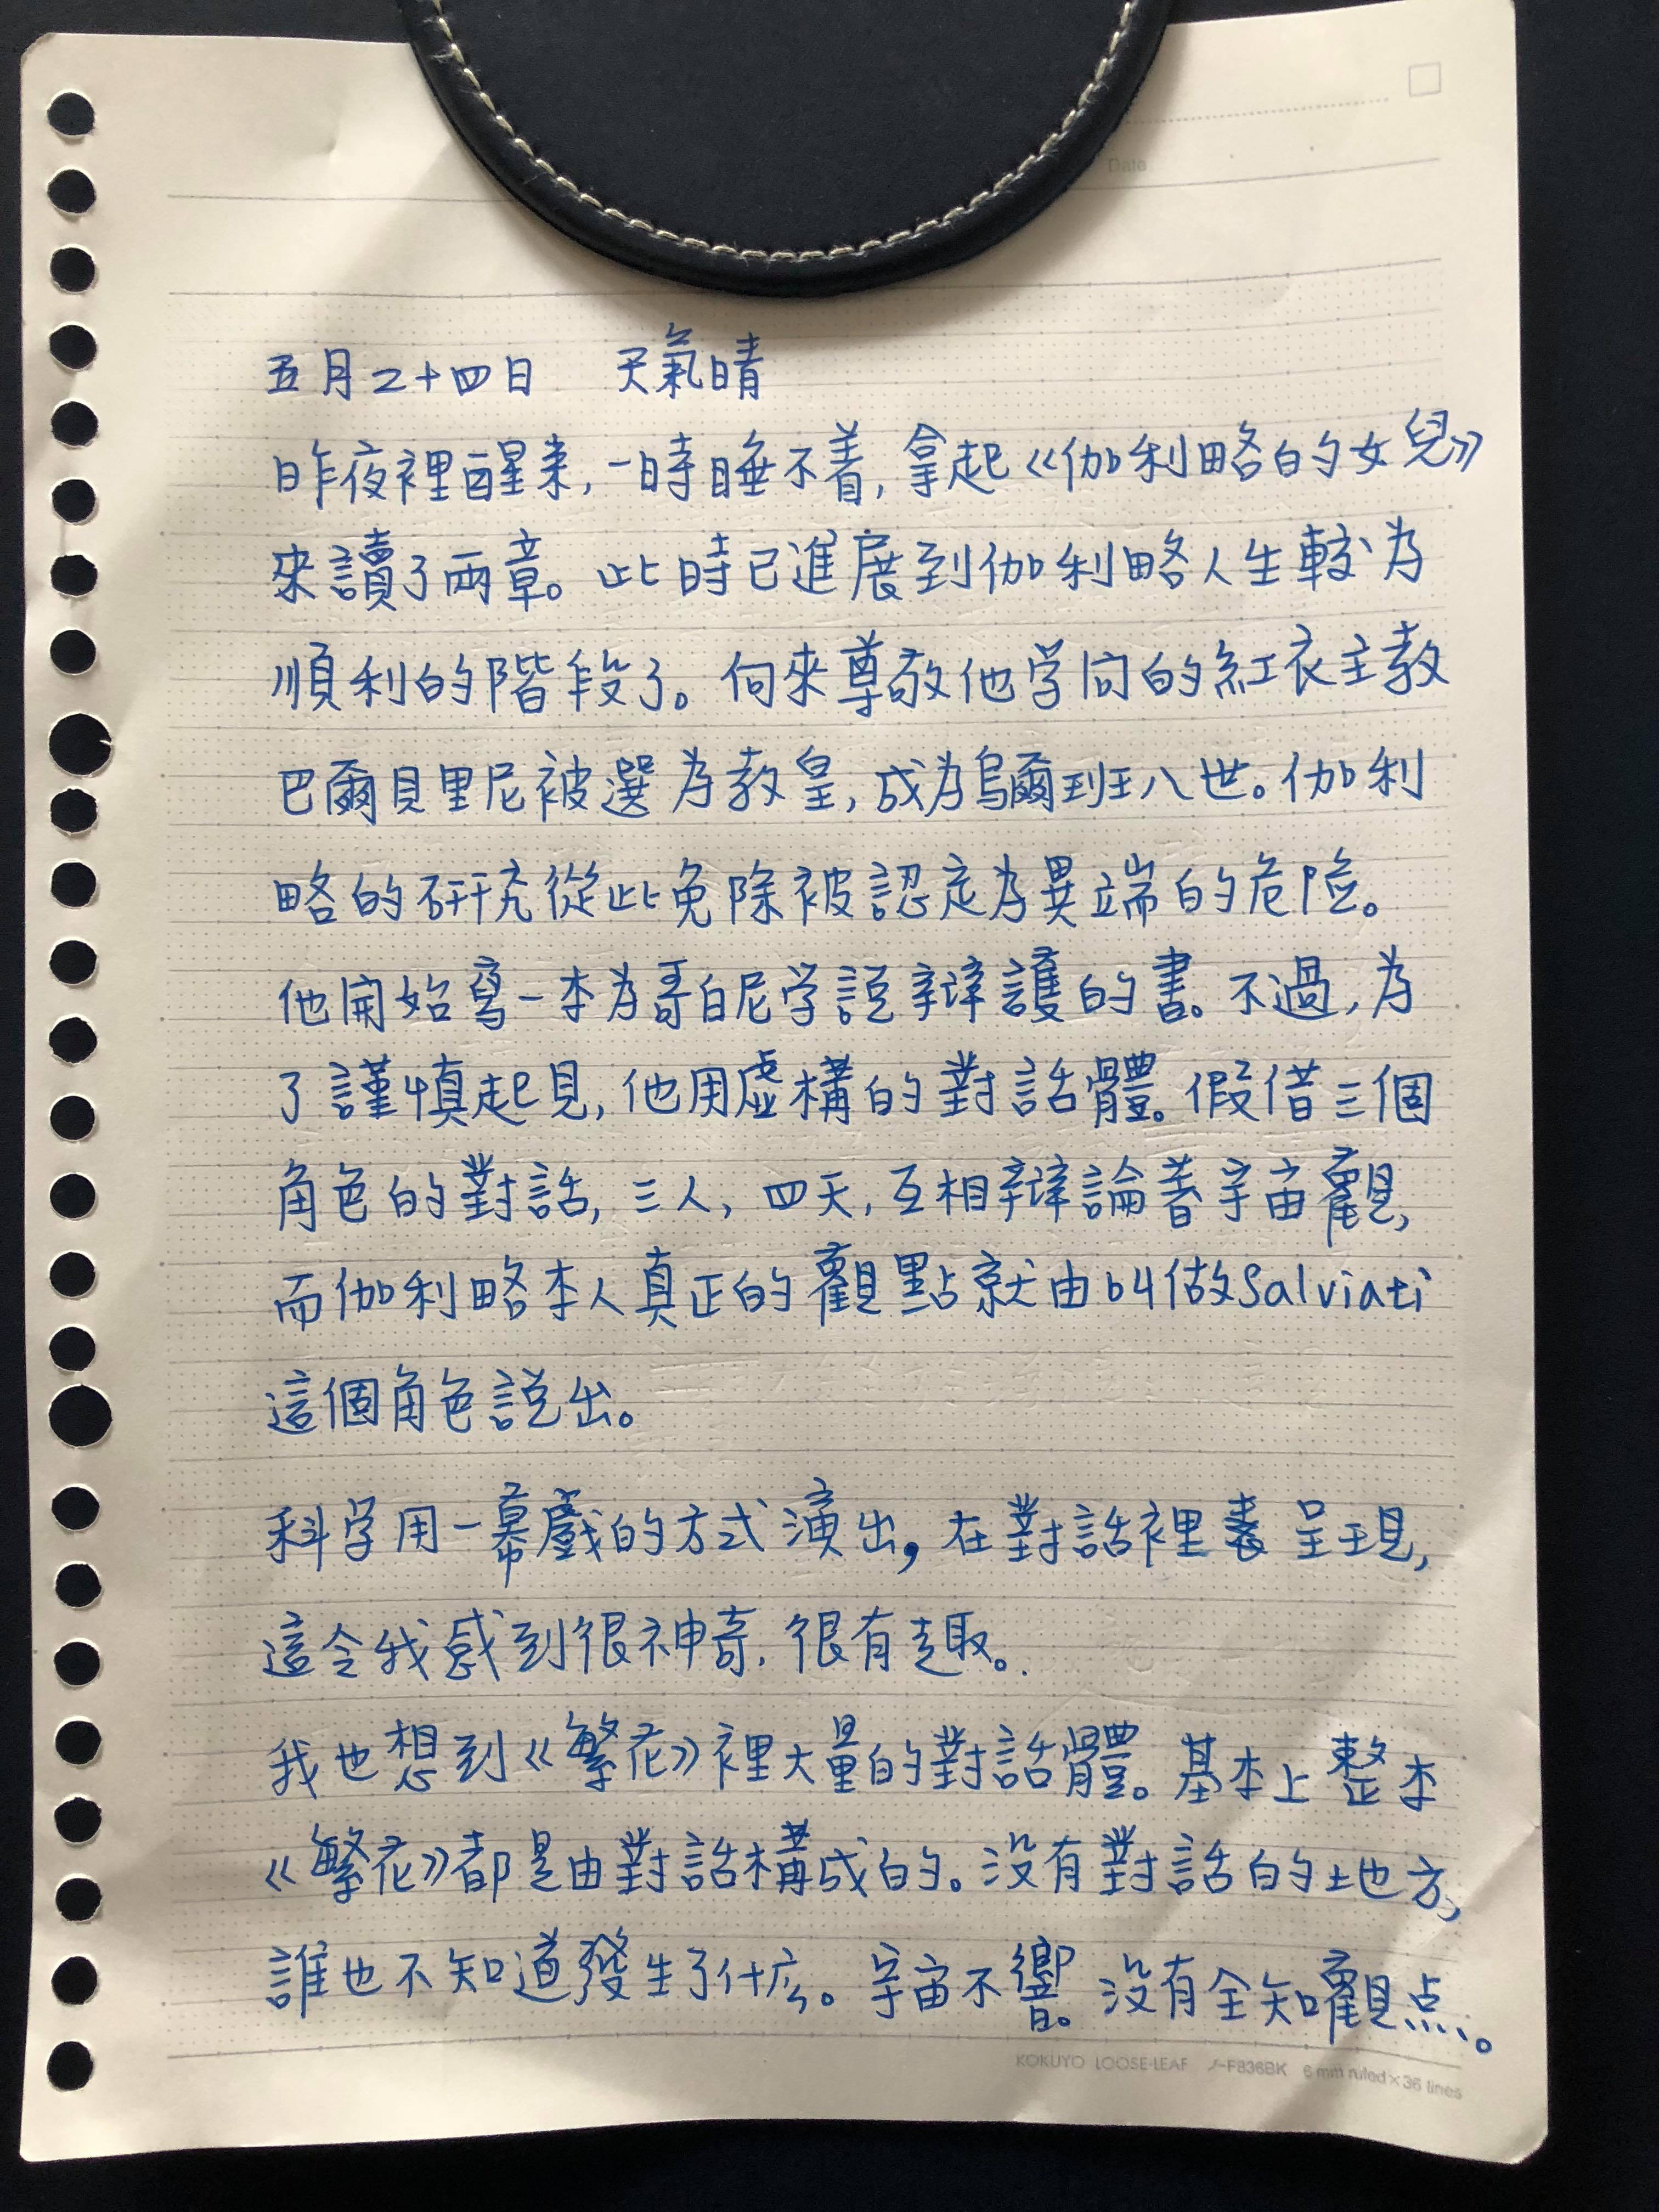 Date
五月二十四日 天氣晴
昨夜裡醒来,一時睡不着,拿起《伽利略的女兒》
來讀了兩章。此時已進展到伽利略人生較為
順利的階段了。向來尊敬他学问的紅衣主教
巴爾貝里尼被選為教皇,成為烏爾班八世。伽利
略的研究從此免除被認定為異端的危险。
他開始寫一本為哥白尼学說辯護的書。不過,為
了謹慎起見,他用虛構的對話體。假借三個
角色的對話,三人,四天,互相辯論著宇宙觀,
而伽利略本人真正的觀點就由叫做Salviati
這個角色說出。
科学用一幕戲的方式演出,在對話裡呈現,
這令我感到很神奇.很有趣。
我也想到《繁花》裡大量的對話體。基本上整本
《繁花》都是由對話構成的。没有對話的地方,
誰也不知道發生了什么。宇宙不響。没有全知觀点。
KOKUYO LOOSE-LEAF ノ-F836BK 6 mm ruled×36 lines